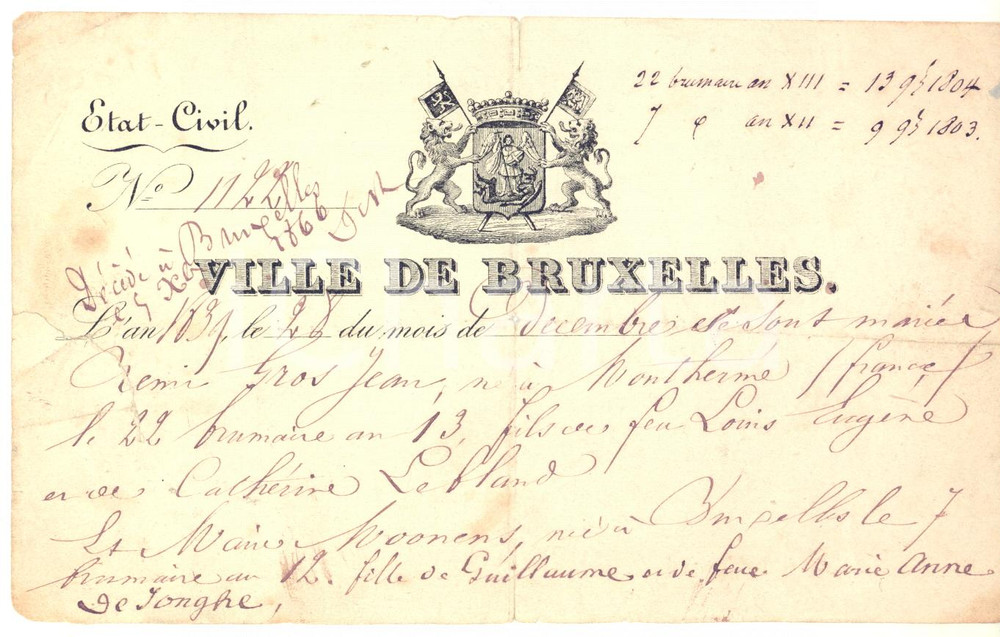 22 brumaire an XIII = 13 9bre 1804
7 " an XII = 9 9bre 1803.
Etat-Civil.
No 1122
Décédé à Bruxelles
1866
VILLE DE BRUXELLES.
L'an 1839, le 28 du mois de Décembre se sont mariés
Remi Gros Jean, né à Montherme (france)
le 22 brumaire an 13, fils de feu Louis Eugène
et de Cathérine Lebland
Et Marie Moonens, née à Bruxelles le 7
brumaire an 12. fille de Guillaume et de feue Marie Anne
De Jonghe,